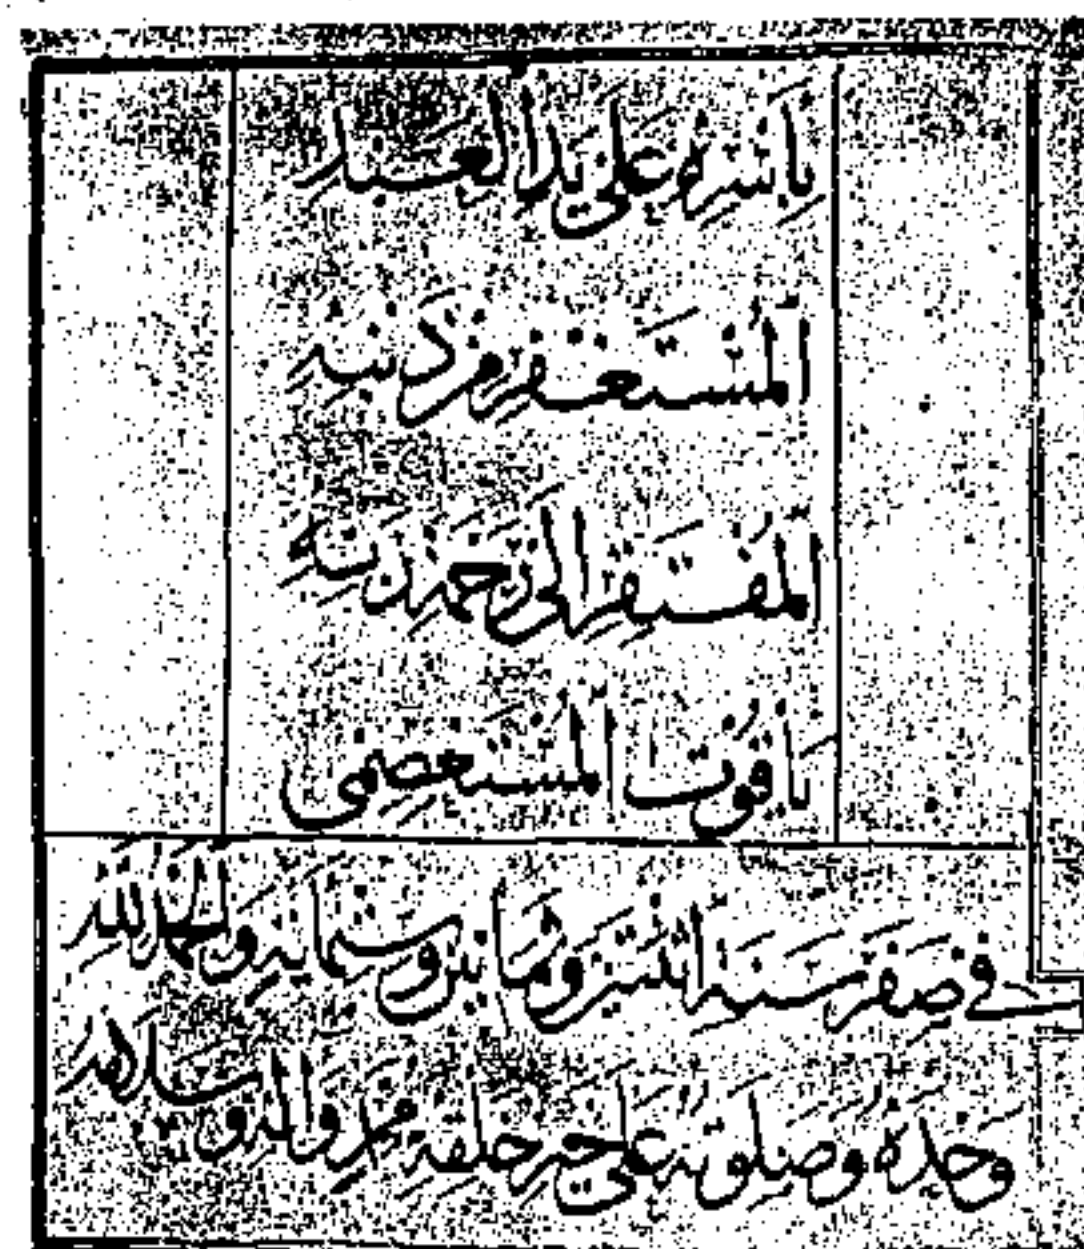 بِأَسْرِهِ عَلَى يَدِ الْعَبْدِ
الْمُسْتَغْفِرِ مِنْ ذَنْبِهِ
الْمُفْتَقِرِ إِلَى رَحْمَةِ رَبِّهِ
يَاقُوتِ الْمُسْتَعْصِمِي
في صَفَر سَنَةِ اثْنَتَيْنِ وَثَمَانِينَ وَسِتِّمِايَةٍ وَالْحَمْدُ لِلَّهِ
وَحْدَهُ وَصَلَوتُهُ عَلَى خَيْرِ خَلْقِهِ مُحَمَّدٍ وَالِهِ وَسَلَامُهُ